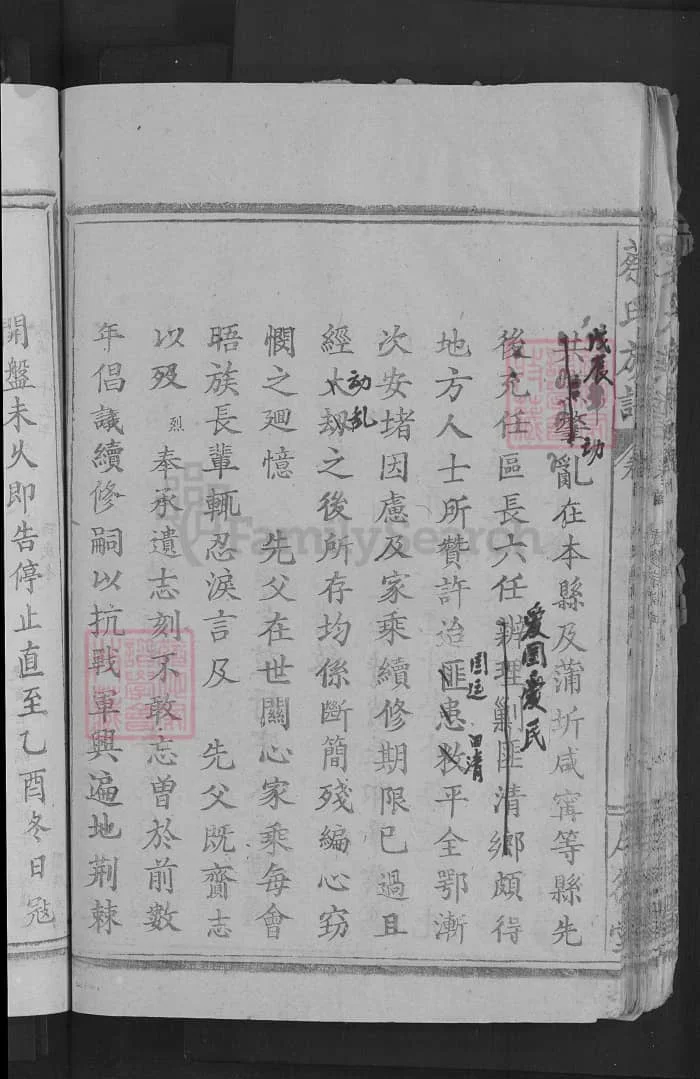 蔡氏族譜
戊辰
肇亂在本縣及蒲圻咸甯等縣先
動
後充任區長六任辦理剿匪清鄉頗得
愛國愛民
地方人士所贊許迨匪患救平全鄂漸
次安堵因慮及家乘續修期限已過且
經大劫之後所存均係斷簡殘編心竊
动乱
憫之廻憶 先父在世關心家乘每會
晤族長輩輒忍淚言及 先父既齎志
以歿 烈 奉承遺志刻不敢忘曾於前數
年倡議續修嗣以抗戰軍興遍地荆棘
開盤未久即告停止直至乙酉冬日寇
FamilySearch